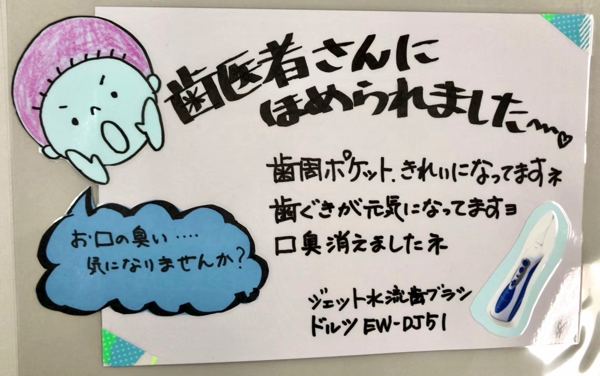 歯医者さんに
ほめられました〜♡
歯周ポケット、きれいになってますネ
歯ぐきが元気になってますヨ
口臭消えましたネ
お口の臭い‥‥
気になりませんか?
ジェット水流歯ブラシ
ドルツ EW-DJ51